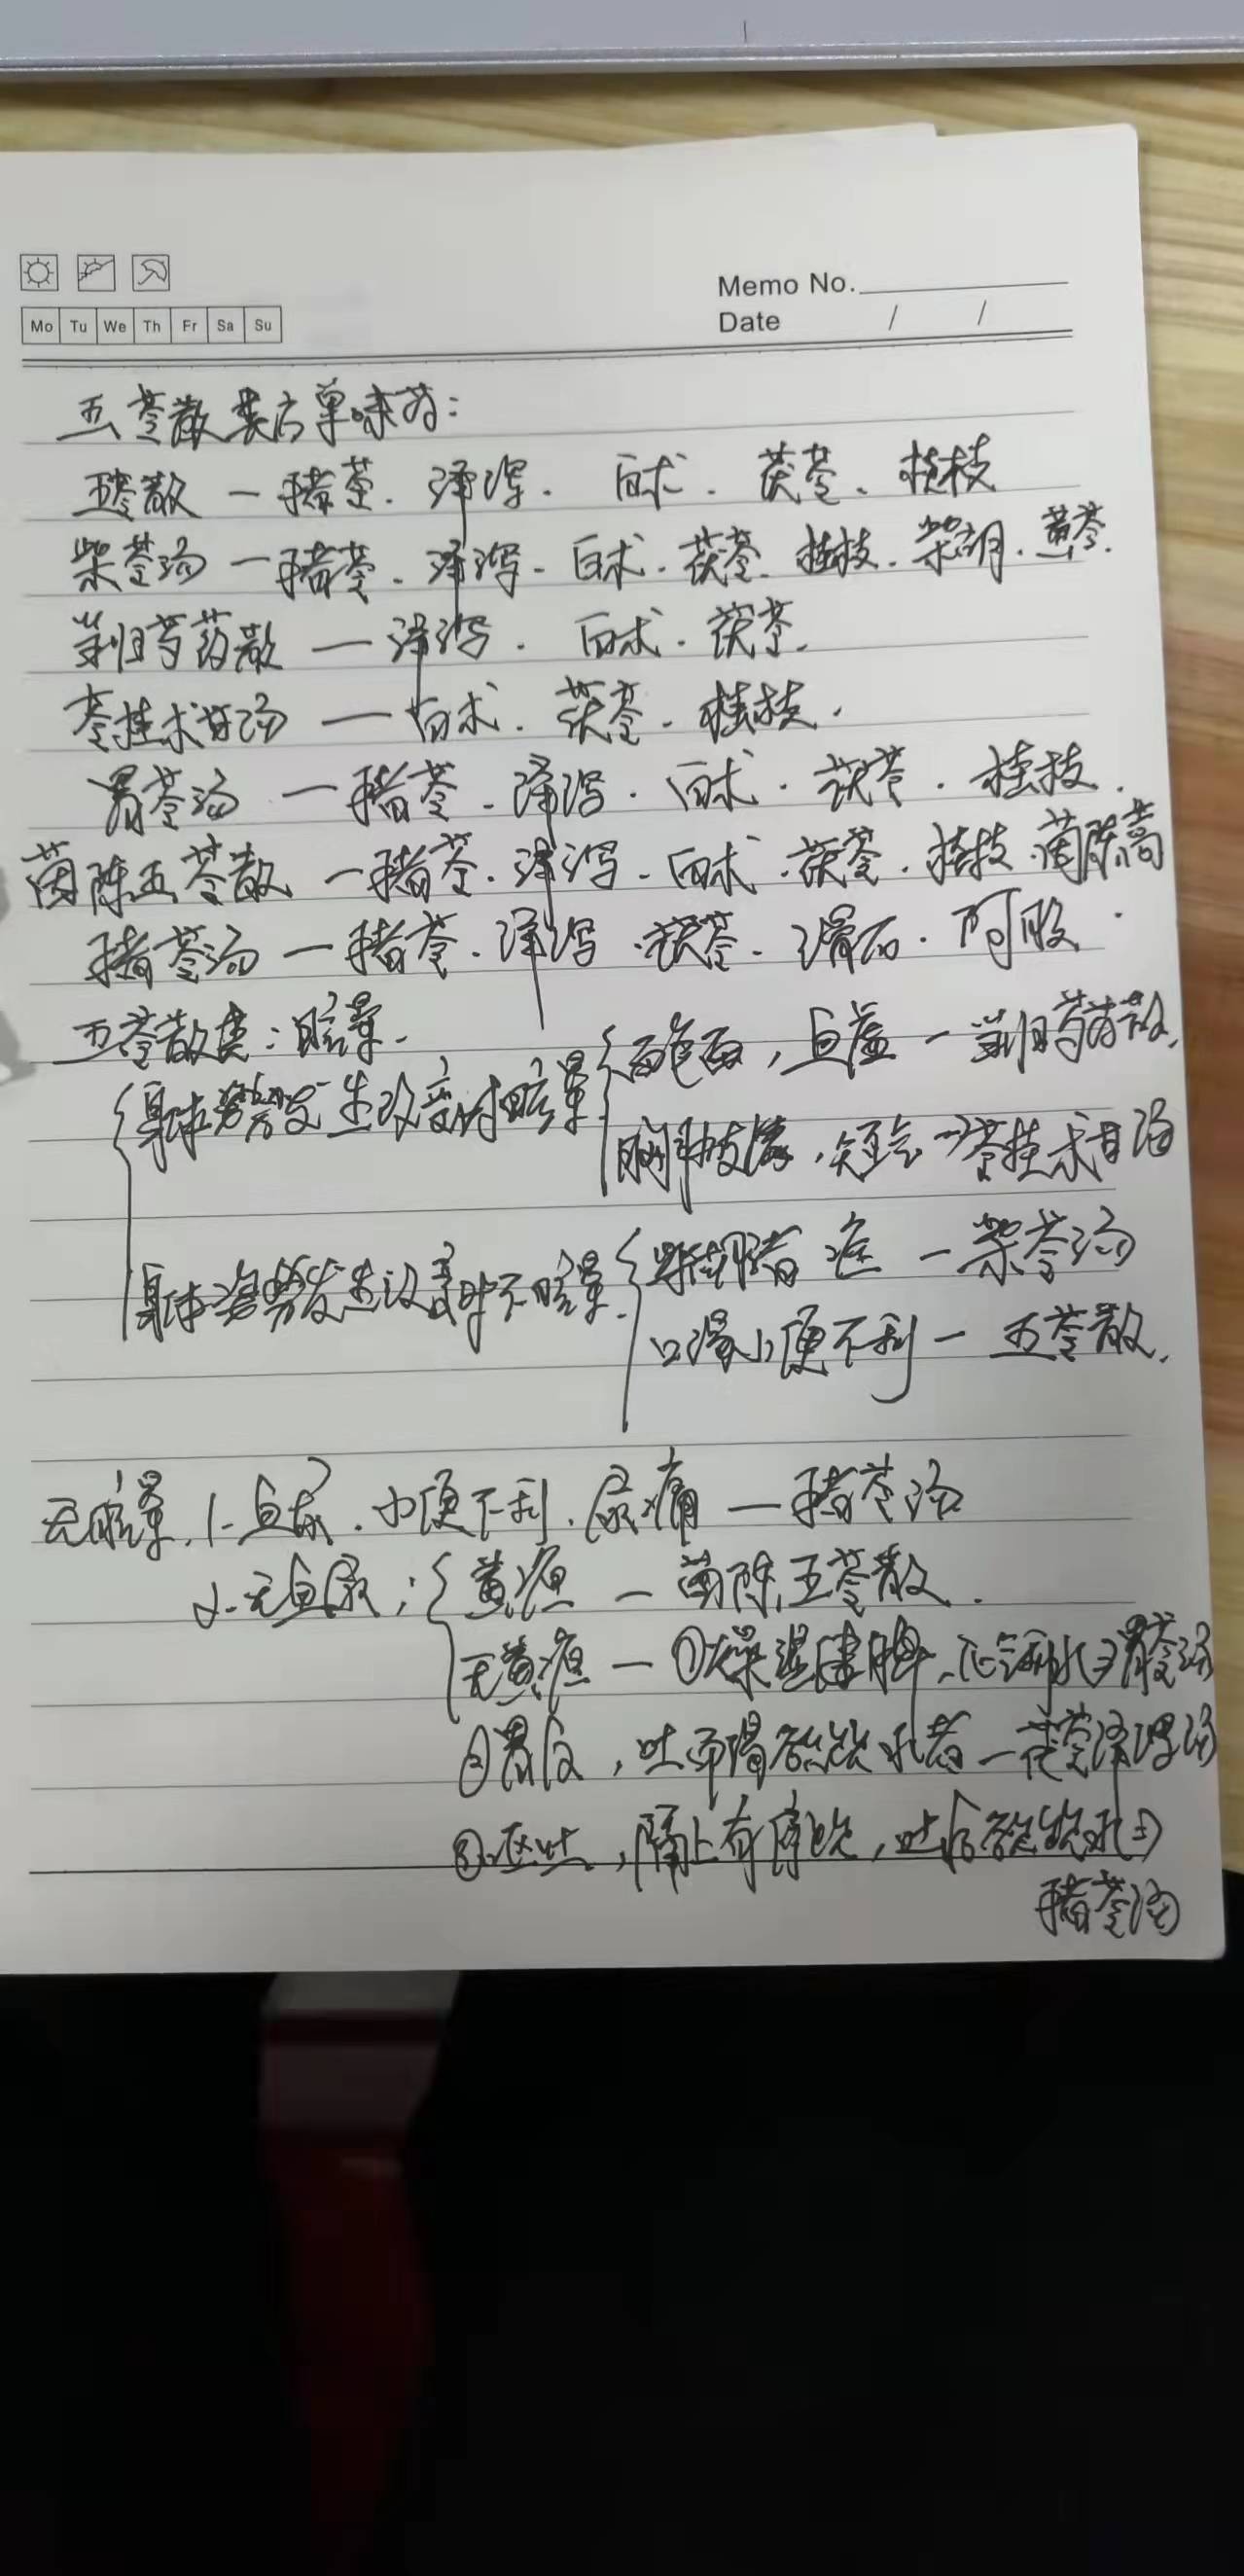 Memo No.
Mo Tu We Th Fr Sa Su
Date / /
五苓散类方单味药:
五苓散 — 猪苓. 泽泻. 白术. 茯苓. 桂枝
柴苓汤 — 猪苓. 泽泻. 白术. 茯苓. 桂枝. 柴胡. 黄芩.
当归芍药散 — 泽泻. 白术. 茯苓.
苓桂术甘汤 — 白术. 茯苓. 桂枝.
胃苓汤 — 猪苓. 泽泻. 白术. 茯苓. 桂枝.
茵陈五苓散 — 猪苓. 泽泻. 白术. 茯苓. 桂枝. 茵陈蒿
猪苓汤 — 猪苓. 泽泻. 茯苓. 滑石. 阿胶.
五苓散类: 眩晕.
身体姿势发生改变时眩晕
面色白, 血虚 — 当归芍药散.
胸胁支满, 短气 → 苓桂术甘汤
身体姿势发生改变时不眩晕.
柴胡 — 柴苓汤
口渴小便不利 — 五苓散.
无眩晕, 1. 血尿. 小便不利. 尿痛 — 猪苓汤
2. 无血尿:
黄疸 — 茵陈五苓散.
无黄疸 — ①燥湿健脾, 化气利水⇒胃苓汤
②胃反, 吐而渴欲饮水者 — 茯苓泽泻汤
③呕吐, 膈上有停饮, 吐后欲饮水⇒
猪苓汤